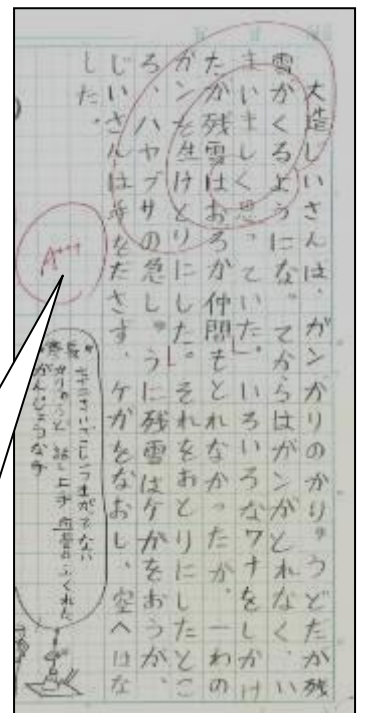 大造じいさんは、ガンがりのかりゅうどだが残
雪がくるようになってからはガンがとれなく、い
まいましく思っていた。いろいろなワナをしかけ
たが残雪はおろか仲間もとれなかったが、一わの
ガンを生けどりにした。それをおとりにしたとこ
ろ、ハヤブサの急しゅうに残雪はケガをおうが、
じいさんは手をださず、ケガをなおし、空へはな
した。
A+++
かりゅうど 話し上手 血管のふくれた
がんじょうな手